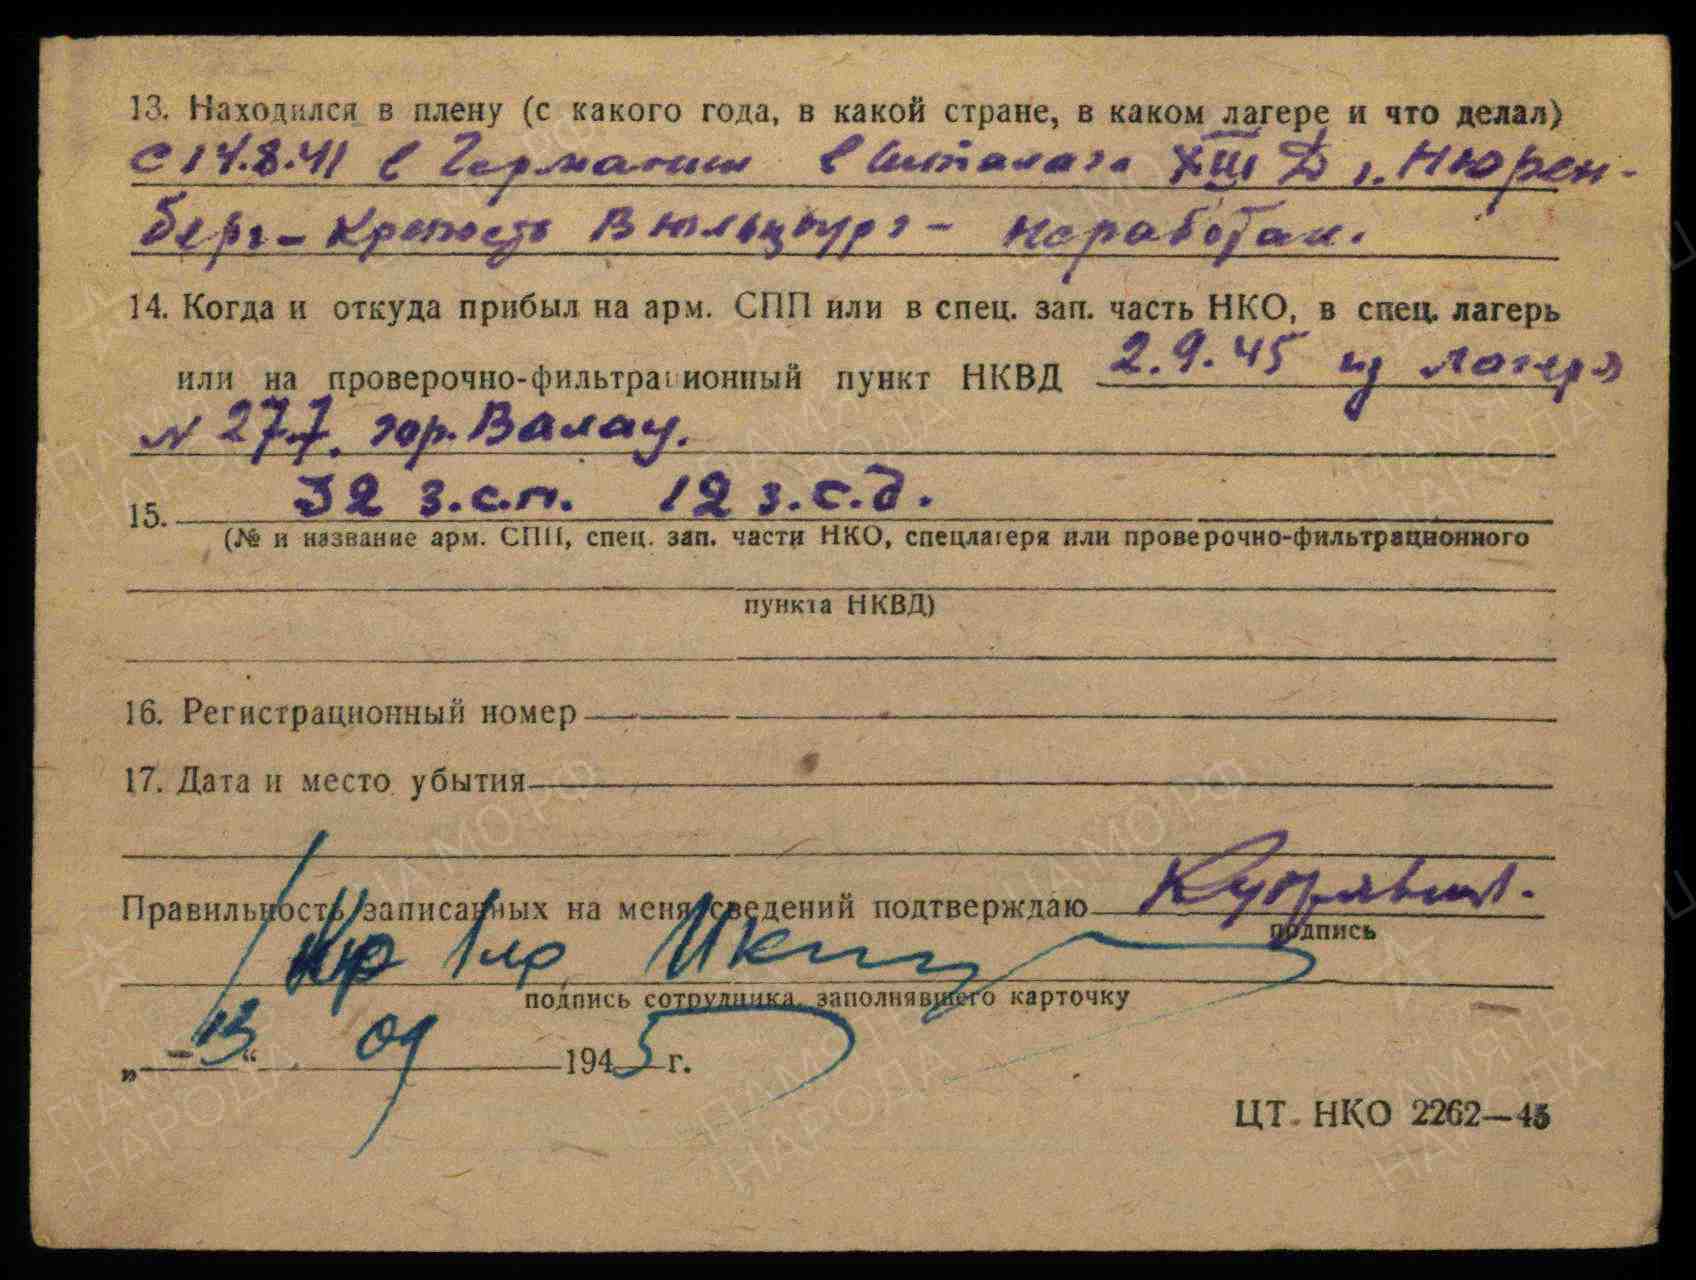 13. Находился в плену (с какого года, в какой стране, в каком лагере и что делал)
с 14.8.41 в Германии в Шталаге XIII Д г. Нюрен-
берг – Крепость Вюльцбург – не работал.
14. Когда и откуда прибыл на арм. СПП или в спец. зап. часть НКО, в спец. лагерь
или на проверочно-фильтрационный пункт НКВД 2.9.45 из лагеря
N 277. гор. Валау.
15. 32 з.с.п. 12 з.с.д.
(№ и название арм. СПП, спец. зап. части НКО, спецлагеря или проверочно-фильтрационного
пункта НКВД)
16. Регистрационный номер
17. Дата и место убытия
Правильность записанных на меня сведений подтверждаю
подпись
подпись сотрудника, заполнявшего карточку
„13“ 09 1945 г.
ЦТ. НКО 2262—45
ПАМЯТЬ НАРОДА